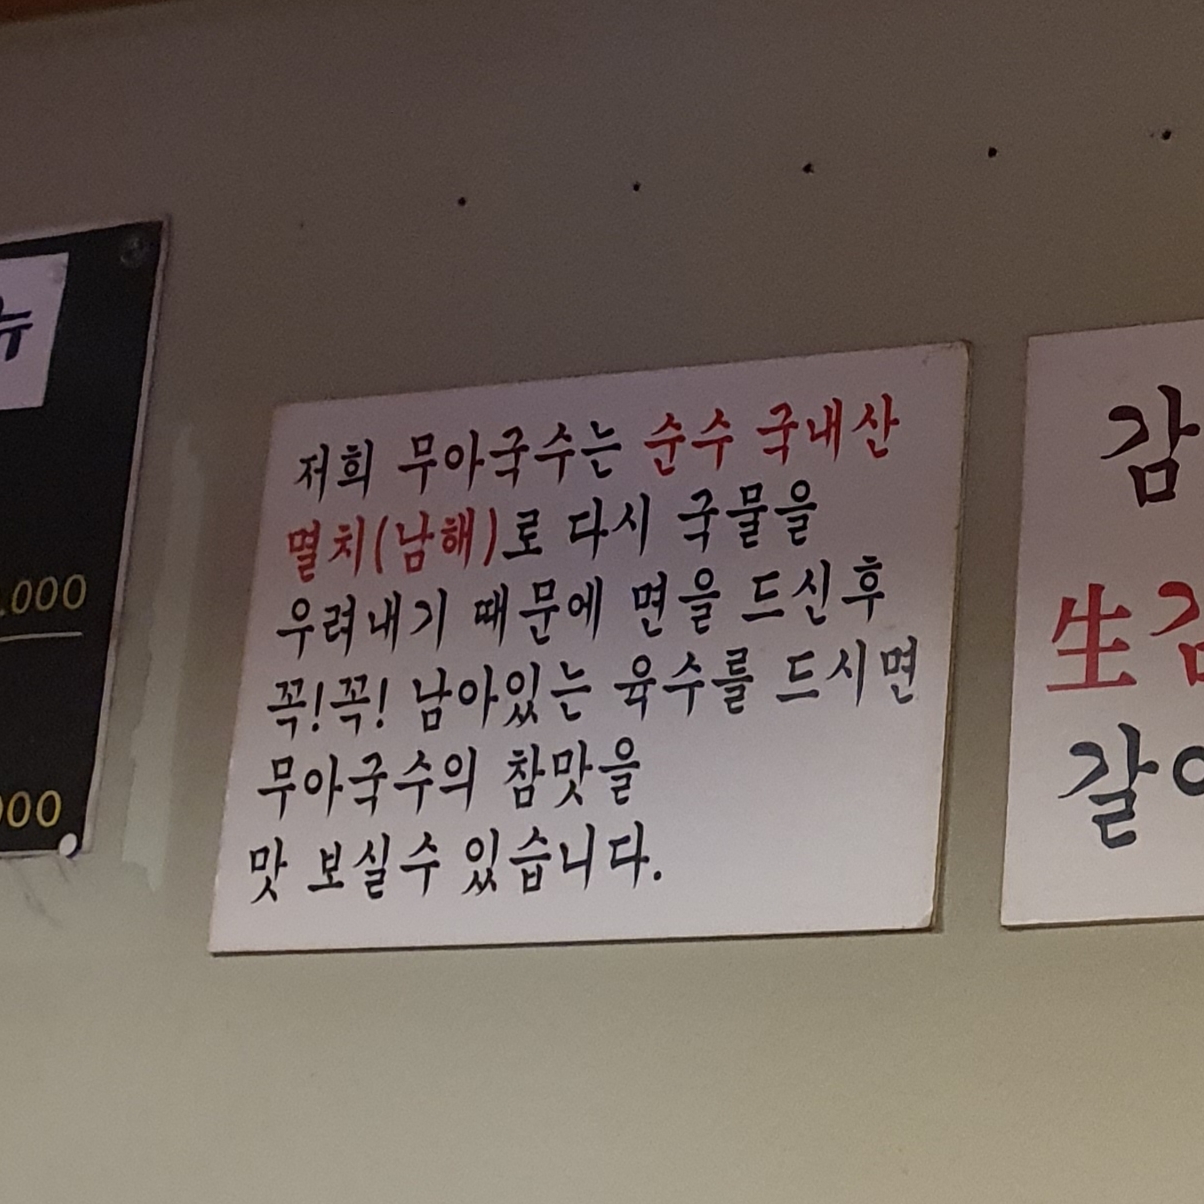 뉴
,000
000
저희 무아국수는 순수 국내산
멸치(남해)로 다시 국물을
우려내기 때문에 면을 드신후
꼭!꼭! 남아있는 육수를 드시면
무아국수의 참맛을
맛 보실수 있습니다.
감
生
갈